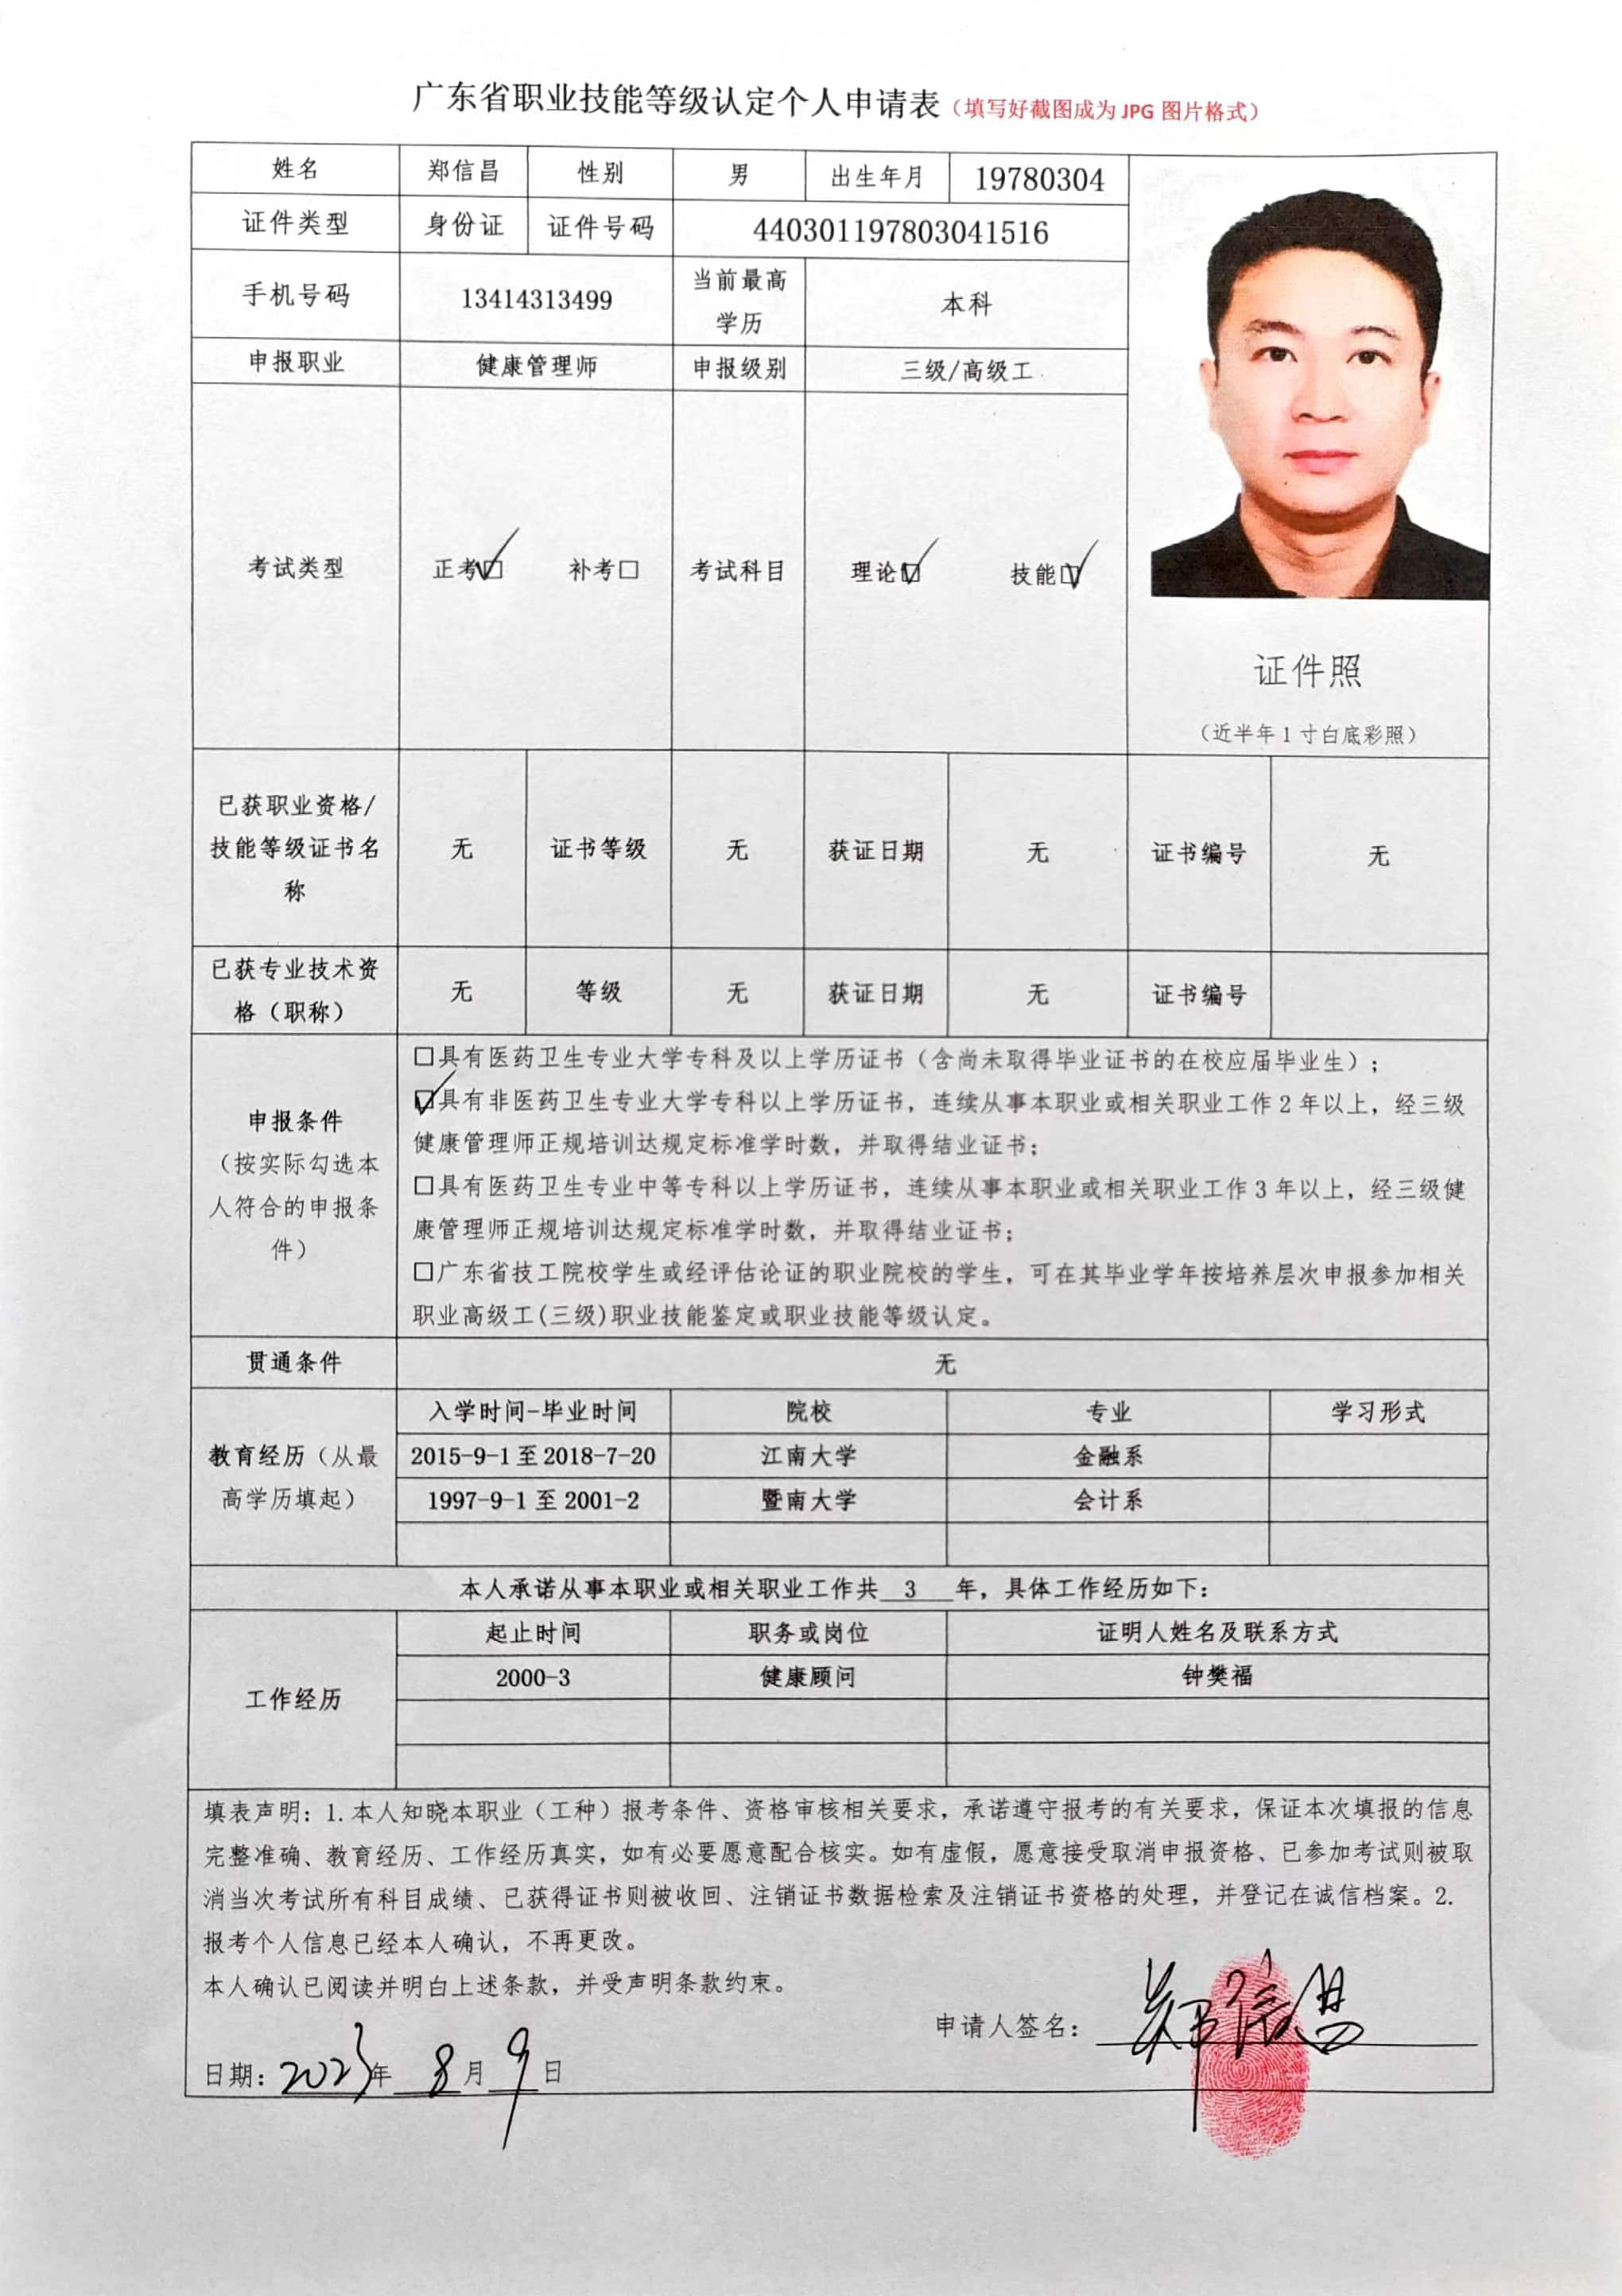 广东省职业技能等级认定个人申请表（填写好截图成为 JPG 图片格式）
姓名 郑信昌 性别 男 出生年月 19780304
证件类型 身份证 证件号码 440301197803041516
手机号码 13414313499 当前最高
学历 本科
申报职业 健康管理师 申报级别 三级/高级工
考试类型 正考☑ 补考□ 考试科目 理论☑ 技能☑
证件照
（近半年 1 寸白底彩照）
已获职业资格/
技能等级证书名
称 无 证书等级 无 获证日期 无 证书编号 无
已获专业技术资
格（职称） 无 等级 无 获证日期 无 证书编号
申报条件
（按实际勾选本
人符合的申报条
件）
□具有医药卫生专业大学专科及以上学历证书（含尚未取得毕业证书的在校应届毕业生）；
☑具有非医药卫生专业大学专科以上学历证书，连续从事本职业或相关职业工作 2 年以上，经三级
健康管理师正规培训达规定标准学时数，并取得结业证书；
□具有医药卫生专业中等专科以上学历证书，连续从事本职业或相关职业工作 3 年以上，经三级健
康管理师正规培训达规定标准学时数，并取得结业证书；
□广东省技工院校学生或经评估论证的职业院校的学生，可在其毕业学年按培养层次申报参加相关
职业高级工(三级)职业技能鉴定或职业技能等级认定。
贯通条件 无
教育经历（从最
高学历填起）
入学时间-毕业时间 院校 专业 学习形式
2015-9-1 至 2018-7-20 江南大学 金融系
1997-9-1 至 2001-2 暨南大学 会计系
本人承诺从事本职业或相关职业工作共 3 年，具体工作经历如下：
工作经历
起止时间 职务或岗位 证明人姓名及联系方式
2000-3 健康顾问 钟樊福
填表声明：1.本人知晓本职业（工种）报考条件、资格审核相关要求，承诺遵守报考的有关要求，保证本次填报的信息
完整准确、教育经历、工作经历真实，如有必要愿意配合核实。如有虚假，愿意接受取消申报资格、已参加考试则被取
消当次考试所有科目成绩、已获得证书则被收回、注销证书数据检索及注销证书资格的处理，并登记在诚信档案。2.
报考个人信息已经本人确认，不再更改。
本人确认已阅读并明白上述条款，并受声明条款约束。
申请人签名：郑信昌
日期：2023年 8月 9日